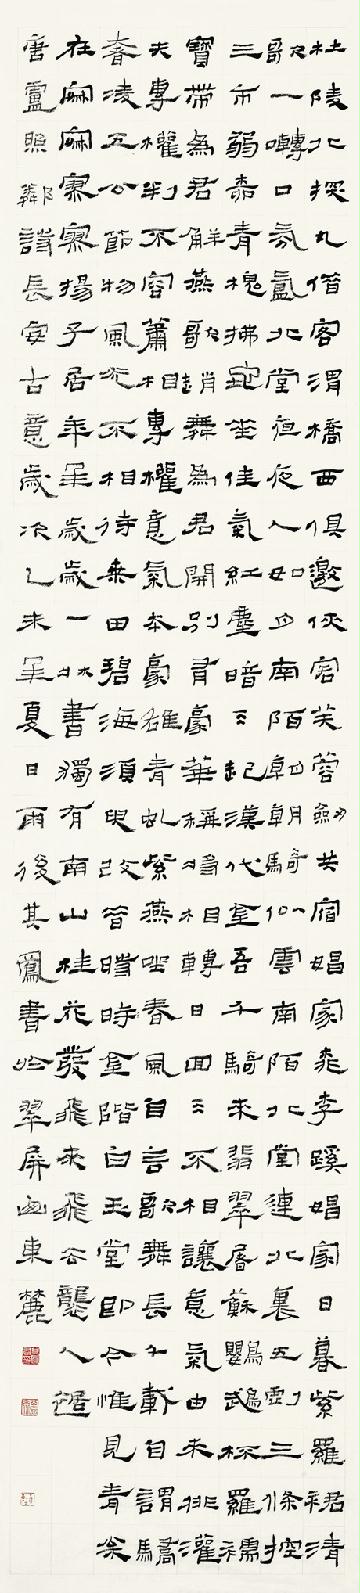 杜陵北探丸借客渭橋西俱邀俠客芙蓉劍共宿娼家桃李蹊娼家日暮紫羅裙清
歌一囀口氛氳北堂夜夜人如月南陌朝朝騎似雲南陌北堂連北裏五劇三條控
三市弱柳青槐拂地垂佳氣紅塵暗天起漢代金吾千騎來翡翠屠蘇鸚鵡杯羅襦
寶帶為君解燕歌趙舞為君開別有豪華稱將相轉日回天不相讓意氣由來排灌
夫專權判不容蕭相專權意氣本豪雄青虬紫燕坐春風自言歌舞長千載自謂驕
奢凌五公節物風光不相待桑田碧海須臾改昔時金階白玉堂即今惟見青松
在寂寂寥寥揚子居年年歲歲一床書獨有南山桂花發飛來飛去襲人裾
唐盧照鄰詩長安古意歲次乙未年夏日雨後其鳳書於翠屏山東麓